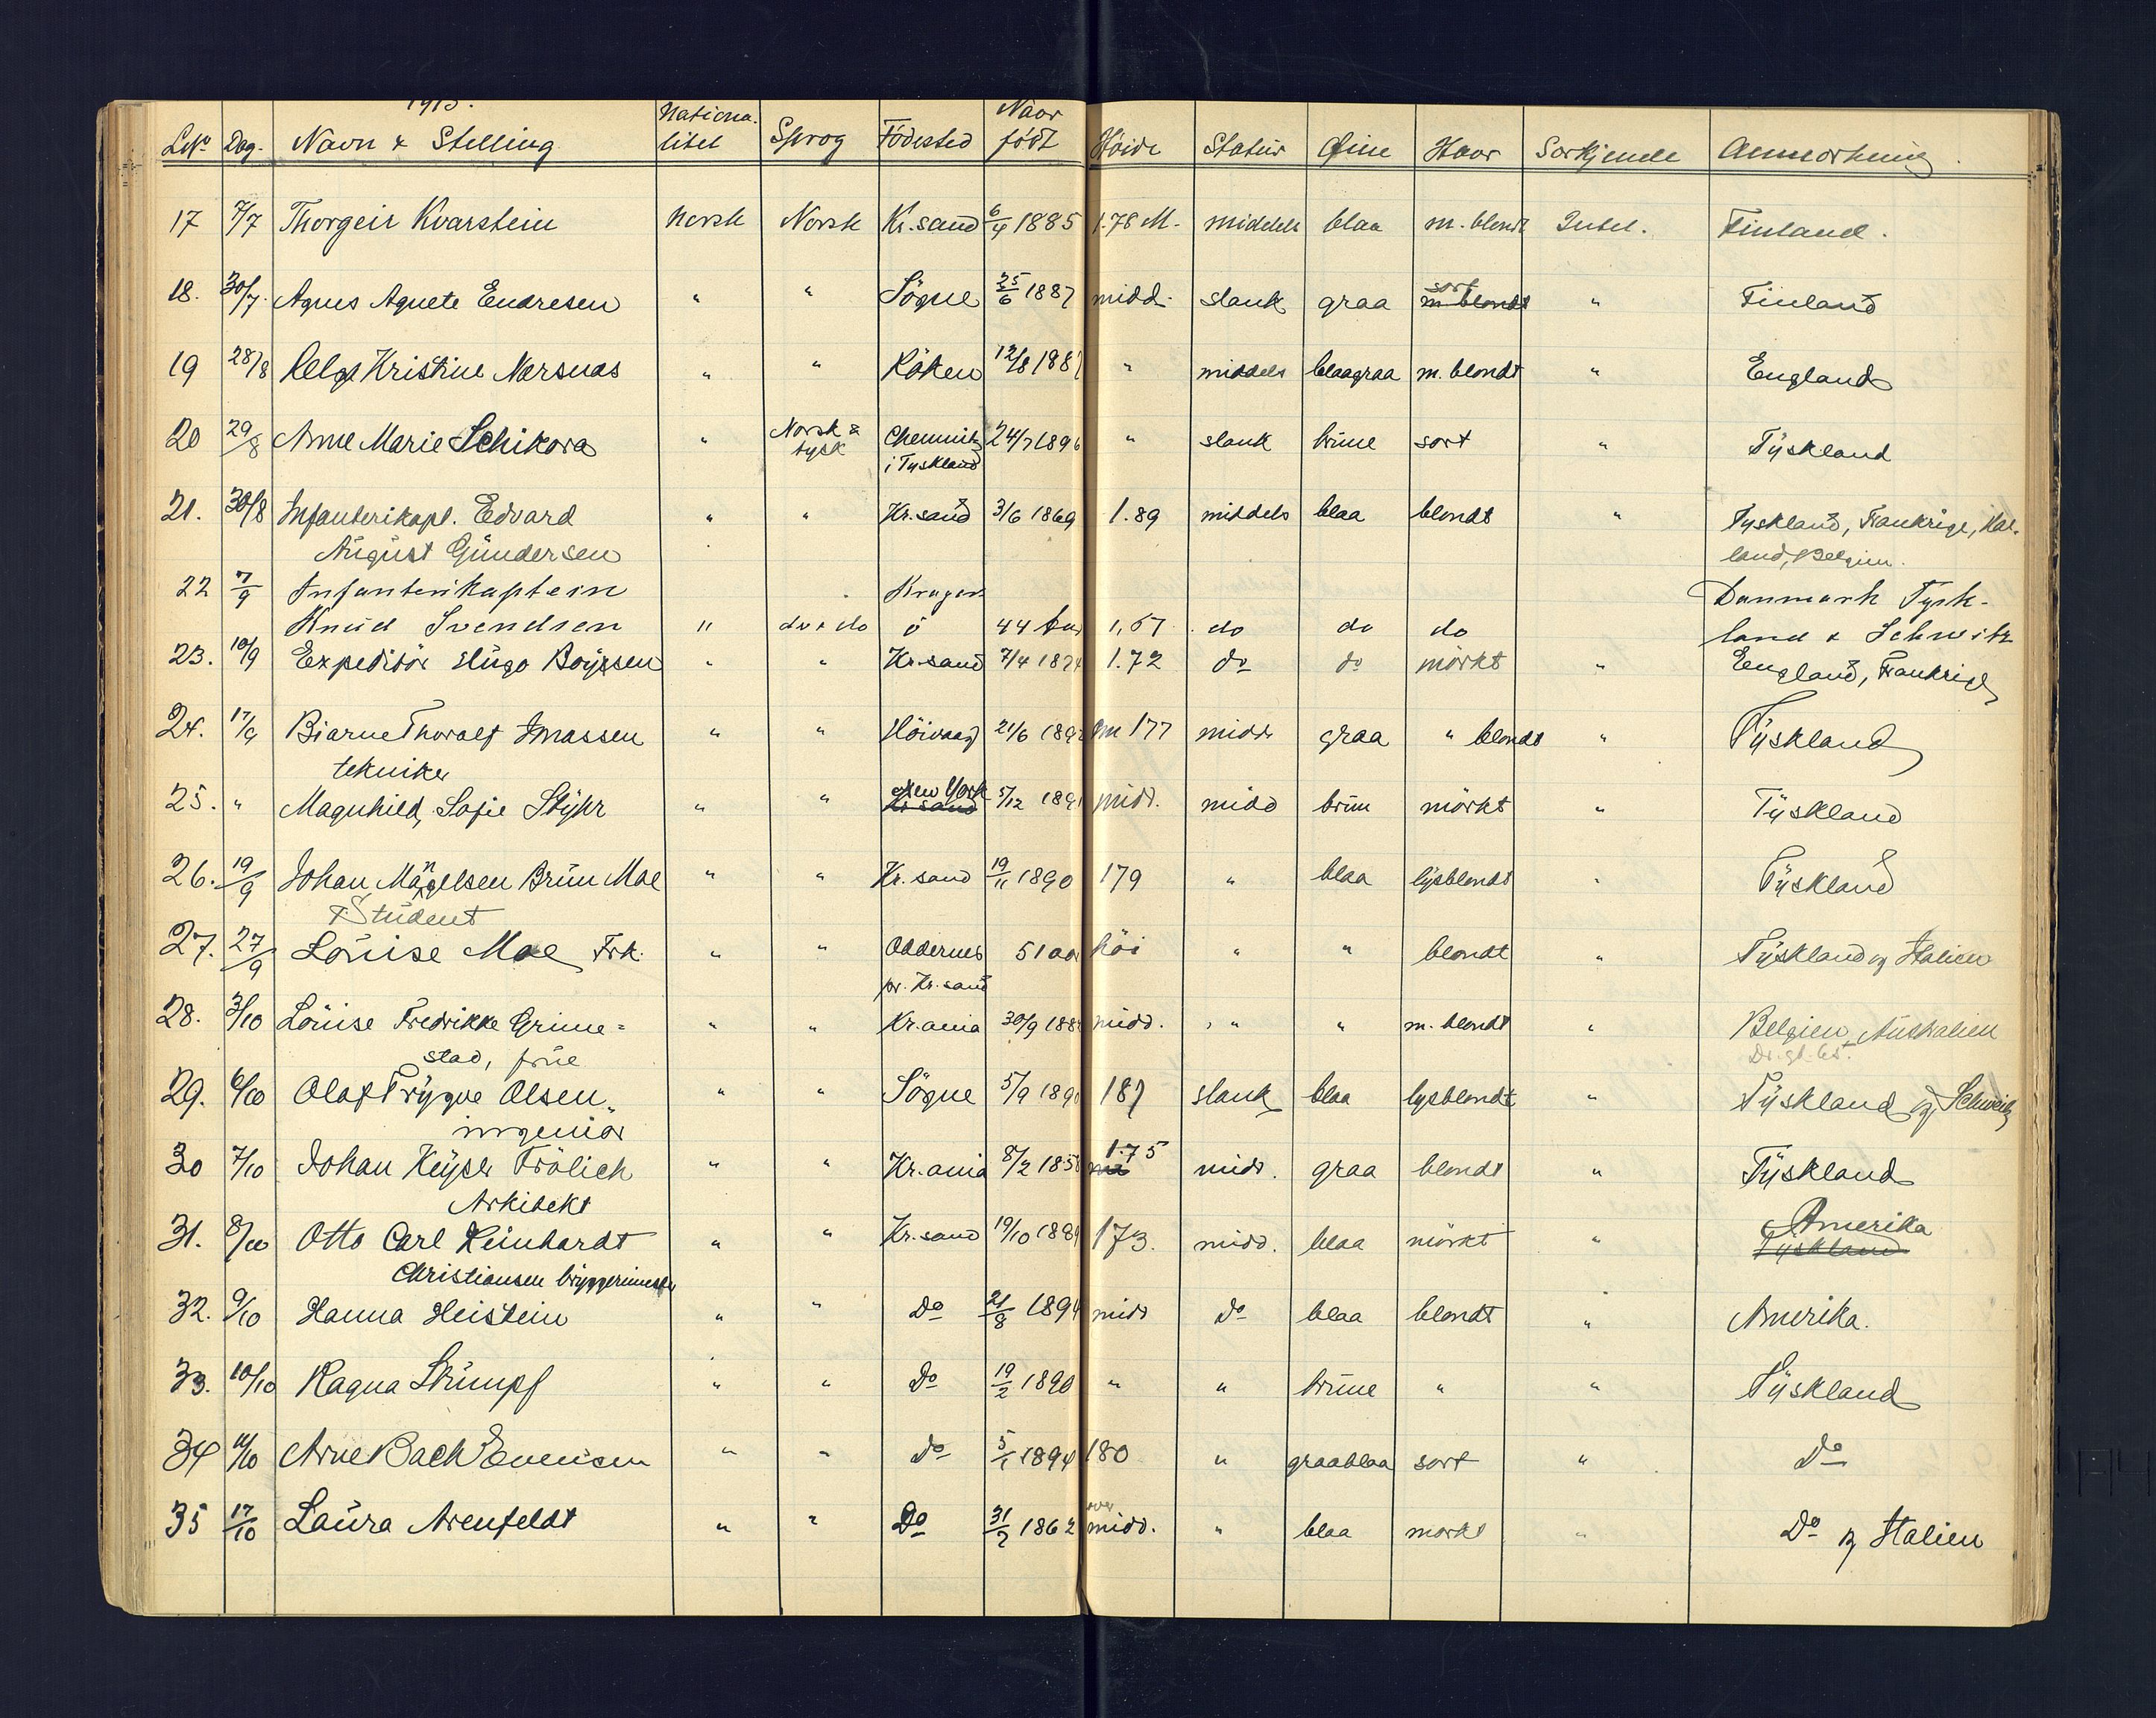 1915.
LNo Dag. Navn & Stelling Nationalitet Sprog Födested Naar födt Höide Statur Øine Haar Særkjende Anmerkning.
17 7/7 Thorgeir Kvarstein Norsk Norsk Kr.sand 6/4 1885 1.78 M. middels blaa m. blondt Intet. Finland.
18. 30/7. Agnes Agnete Endresen " " Sögne 25/6 1887 midd. slank graa sort m blondt " Finland
19 28/8 Helga Kristine Narsnes " " Röken 12/8 1887 " middels blaagraa m. blondt " England
20 29/8 Anne Marie Schikora " Norsk & tysk Chemnitz i Tyskland 24/7 1896 " slank brune sort " Tyskland
21. 30/8 Infanterikapt. Edvard " " Kr.sand 3/6 1869 1.89 middels blaa blondt " Tyskland, Frankrige, Hol-
August Gundersen land, Belgien.
22 7/9 Infanterikaptein Krager Danmark Tysk-
Knud Svendsen " do & do ö 44 aar 1,67 do do do land & Schweitz
23. 10/9 Expeditör Hugo Boysen " " Kr.sand 7/4 1874 1.72 do do mörkt " England, Frankrige
24. 17/9 Bjarne Thoralf Imassen " " Höivaag 21/6 189 m 177 midd graa " blondt " Tyskland
tekniker
25. " Magnhild Sofie Styhr " " New York Kr sand 5/12 1891 midd. midd brun mörkt " Tyskland
26. 19/9 Johan Mangelsen Brun Moe " " Kr. sand 19/11 1890 179 " blaa lysblondt " Tyskland
Student
27. 27/9 Louise Moe Frk. " " Oddernes 51 aar höi " " blondt " Tyskland og Italien
pr. Kr.sand
28. 3/10 Louise Fredrikke Grime= " " Kr.ania 30/9 188 midd. " " m. blondt " Belgien, Australien
stad, frue
29. 6/10 Olaf Trygve Olsen, " " Sögne 5/9 1890 187 slank blaa lysblondt " Tyskland og Schweitz
ingeniör
30 7/10 Johan Keyser Frölich " " Kr.ania 8/2 1858 1.75 midd. graa blondt " Tyskland
Arkitekt
31. 8/10 Otto Carl Reinhardt " " Kr.sand 19/10 1889 173. midd. blaa mörkt " Amerika Tyskland
Christiansen bryggerimester
32. 9/10 Hanna Heistein " " Do 21/8 1894 midd Do blaa blondt " Amerika.
33. 10/10 Ragna Stumpf " " Do 19/2 1890 " " brune " " Tyskland
34 11/10 Arne Bach Evensen " " Do 5/1 1894 180 " graablaa sort " Do
35 17/10 Laura Arenfeldt " " Do 31/7 1862 over midd. " blaa mörkt " Do og Italien